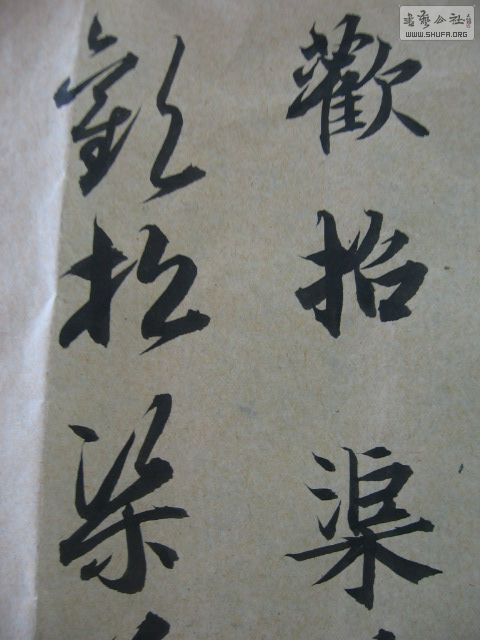 歡招渠
歡招渠
書藝公社
WWW.SHUFA.ORG